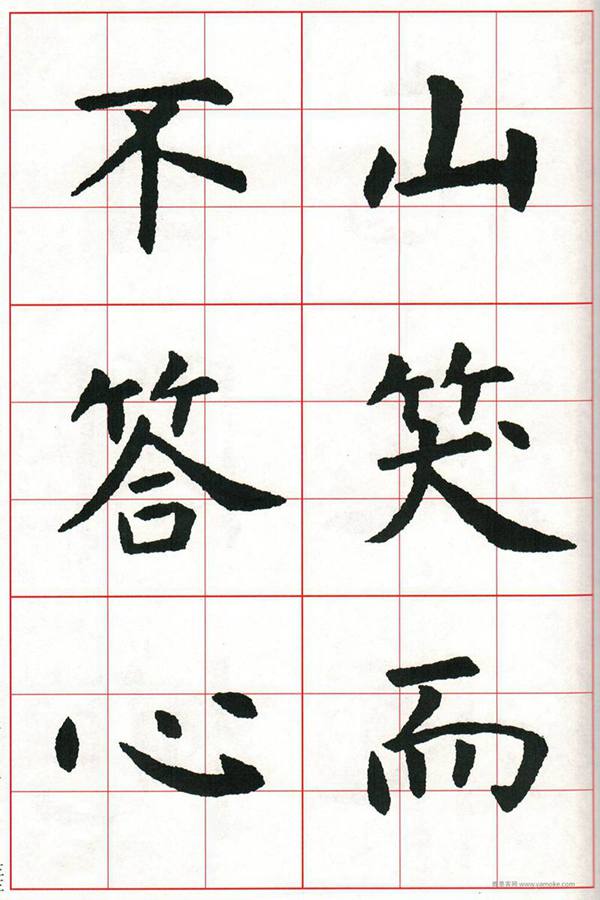 山笑而
不答心
www.yamoke.com